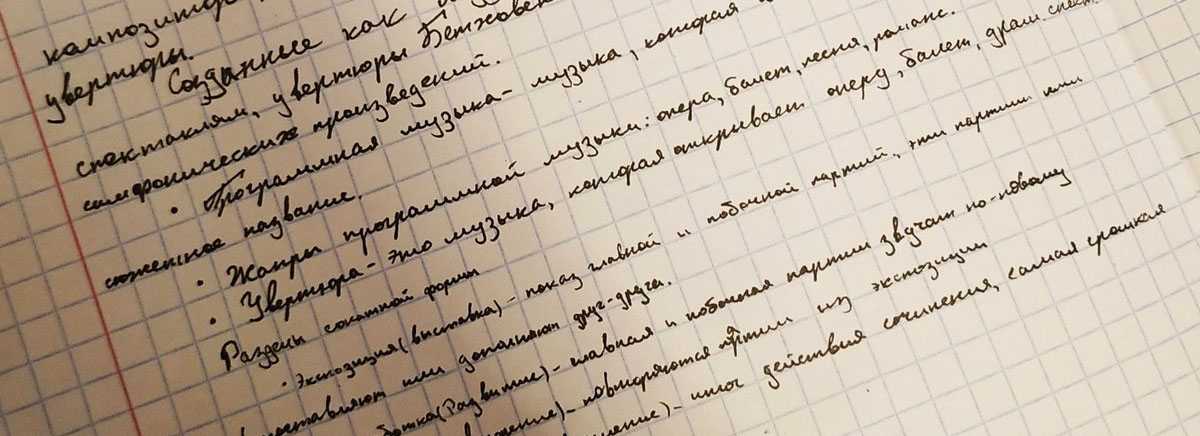 композитор
увертюры.
Созданные как
спектаклям, увертюры Бетховен
симфонических произведений.
• Программная музыка - музыка, которая
сюжетное название.
• Жанры программной музыки: опера, балет, песня, романс.
• Увертюра - это музыка, которая открывает оперу, балет, драм. спект
Разделы сонатной формы
• Экспозиция (выставка) - показ главной и побочной партий, эти партии или
оставляют или дополняют друг-друга.
ботка (Развитие) - главная и побочная партии звучат по-новому
ждение) - повторяются партии из экспозиции
шение) - итог действия сочинения, самая яркая